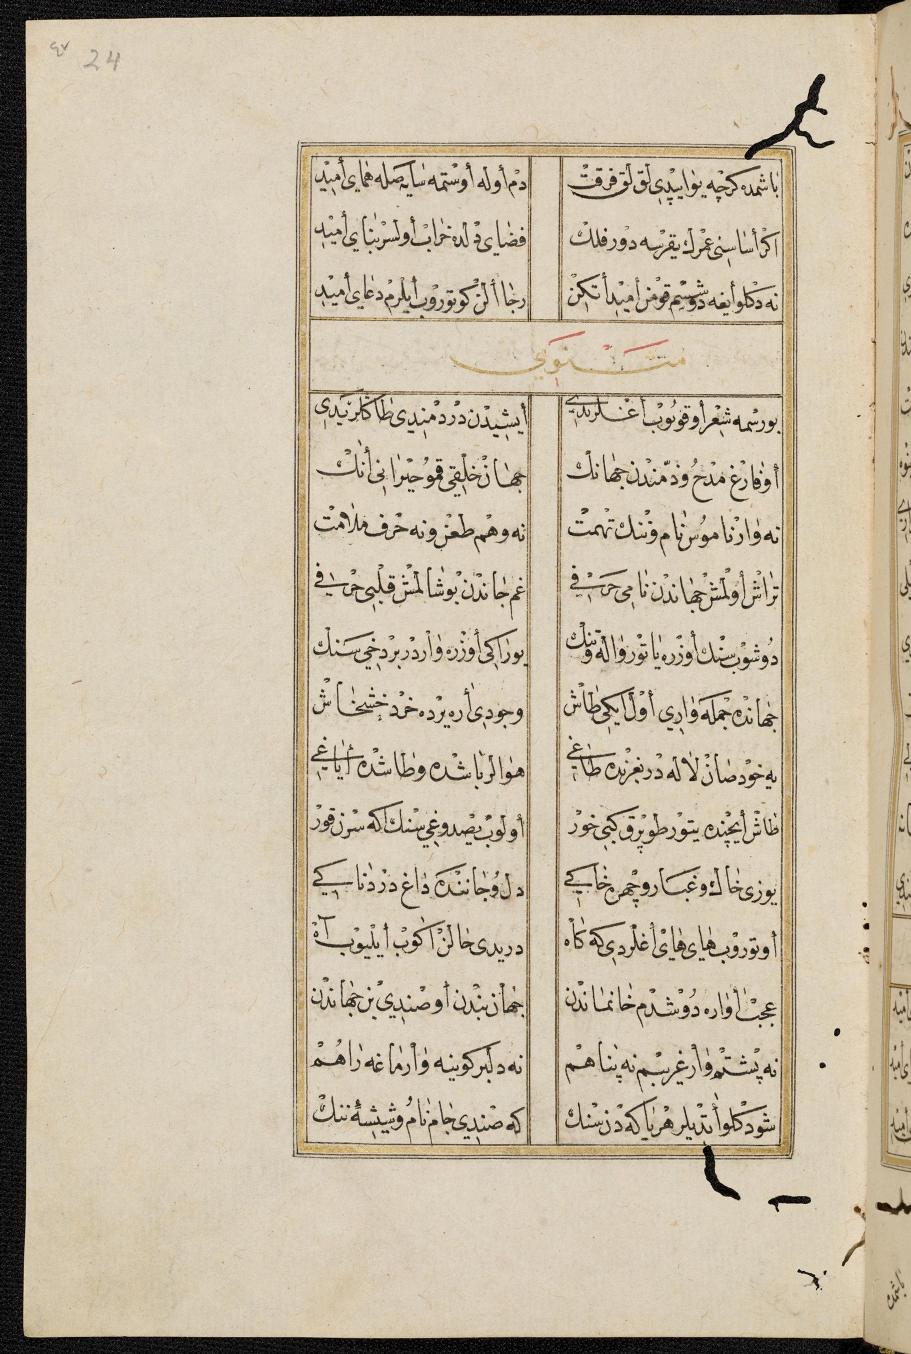 24
باشمده كرچه يوا يپدى لق لق فرقت
دم أوله أوستمه سايه صله هماى أميد
اكر أساسنى عمرك يقرسه دور فلك
فضاى دلده خراب أولسر بناى أميد
نه دكلو أيغه دوشسم قومن أميد أتكن
رجا ألن كوتوروب أيلرم دعاى أميد
مثنوي
بو رسمه شعر أوقويوب أغلريدى
أيشيدن دردمندى طاكلريدى
أو فارغ مدح و ذمندن جهانك
جهان خلقى قمو حيرانى أنك
نه وار ناموس نام و ننك تهمت
نه وهم طعن و نه حرف ملامت
تراش أولمش جهاندن نامى حرفى
غم جاندن بوشالمش قلبى حرفى
دوشوب سنك أوزره ياتور واله و تنك
يوراكى أوزره واردر بر دخى سنك
جهانده جمله وارى أول ايكى طاش
وجودى أره يرده خرد خشخاش
يه خود صان لاله در بغرنده طاغى
هوالر باشده و طاشده أياغى
طاش أيچنده يتور طوپرق كبى خور
أولوب يصدوغى سنك اكه سرن قور
يوزى خاك و غبار و چهره خاكى
دل و جاننده داغ دردناكى
أوتوروب هاى هاى أغلردى كه كاه
دريدى حالن اكوب أيليوب آه
عجب أواره دوشدم خانماندن
جهان بندن أوصندى بن جهاندن
نه پشتم وار غريبم نه پناهم
نه دلبر كوينه وارماغه راهم
شو دكلو أتديلر هر ياكه دن سنك
كه صندى جام نام و شيشۀ ننك